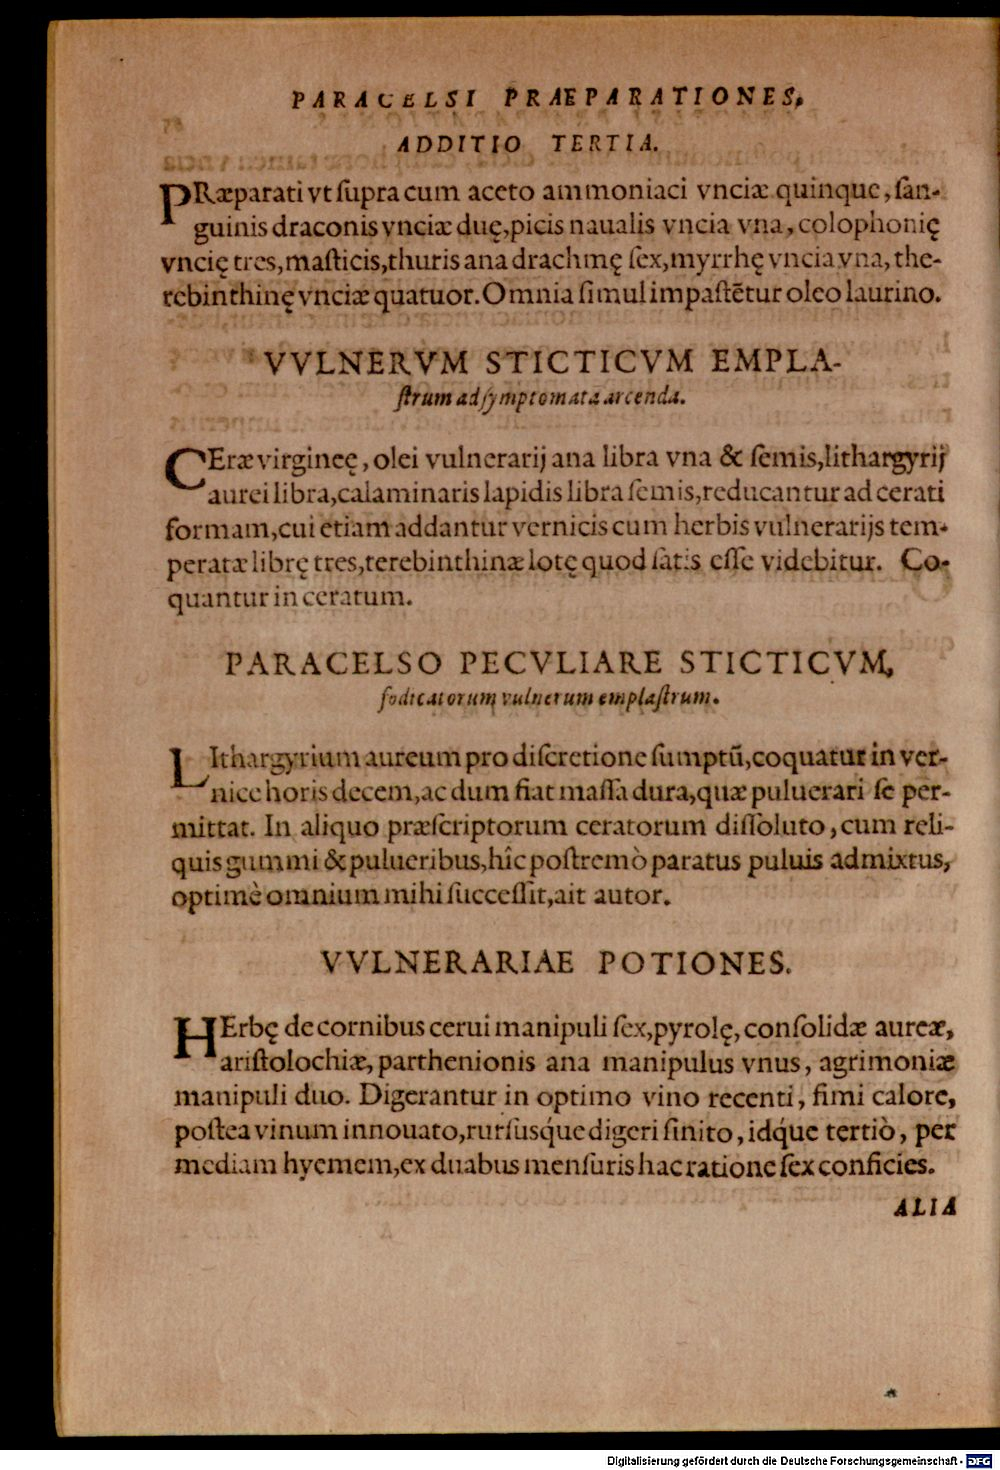 PARACELSI PRAEPARATIONES,
ADDITIO TERTIA.
PRæparati vt ſupra cum aceto ammoniaci vnciæ quinque, ſan-
guinis draconis vnciæ duę, picis naualis vncia vna, colophonię
vncię tres, maſticis, thuris ana drachmę ſex, myrrhę vncia vna, the-
rebinthinę vnciæ quatuor. Omnia ſimul impaſtētur oleo laurino.
VVLNERVM STICTICVM EMPLA-
ſtrum ad ſymptomata arcenda.
CEræ virgineę, olei vulnerarij ana libra vna & ſemis, lithargyrij
aurei libra, calaminaris lapidis libra ſemis, reducantur ad cerati
formam, cui etiam addantur vernicis cum herbis vulnerarijs tem-
peratæ librę tres, terebinthinæ lotę quod ſatis eſſe videbitur. Co-
quantur in ceratum.
PARACELSO PECVLIARE STICTICVM,
fodicatorum vulnerum emplaſtrum.
LIthargyrium aureum pro diſcretione ſumptū, coquatur in ver-
nice horis decem, ac dum fiat maſſa dura, quæ puluerari ſe per-
mittat. In aliquo præſcriptorum ceratorum diſſoluto, cum reli-
quis gummi & pulueribus, hîc poſtremò paratus puluis admixtus,
optimè omnium mihi ſucceſſit, ait autor.
VVLNERARIAE POTIONES.
HErbę de cornibus cerui manipuli ſex, pyrolę, conſolidæ aureæ,
ariſtolochiæ, parthenionis ana manipulus vnus, agrimoniæ
manipuli duo. Digerantur in optimo vino recenti, fimi calore,
poſtea vinum innouato, rurſusq́ue digeri ſinito, idq́ue tertiò, per
mediam hyemem, ex duabus menſuris hac ratione ſex conficies.
ALIA
Digitalisierung gefördert durch die Deutsche Forschungsgemeinschaft - DFG